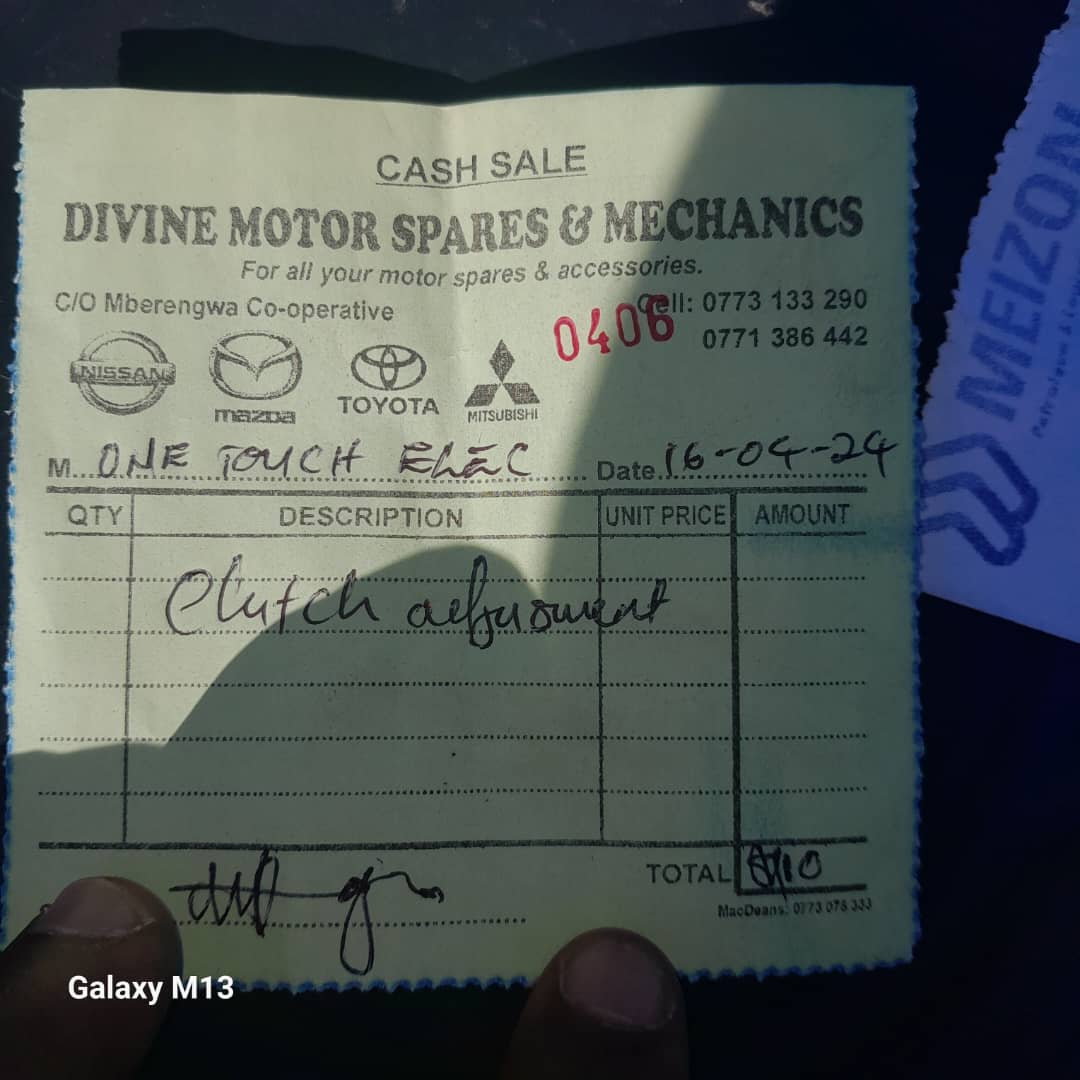 CASH SALE
DIVINE MOTOR SPARES & MECHANICS
For all your motor spares & accessories.
C/O Mberengwa Co-operative
Cell: 0773 133 290
0406
0771 386 442
NISSAN
mazda
TOYOTA
MITSUBISHI
M...ONE TOUCH ELEC Date 16-04-24
QTY DESCRIPTION UNIT PRICE AMOUNT
Clutch
TOTAL
MacDeans: 0773 075 333
MEIZON
Galaxy M13